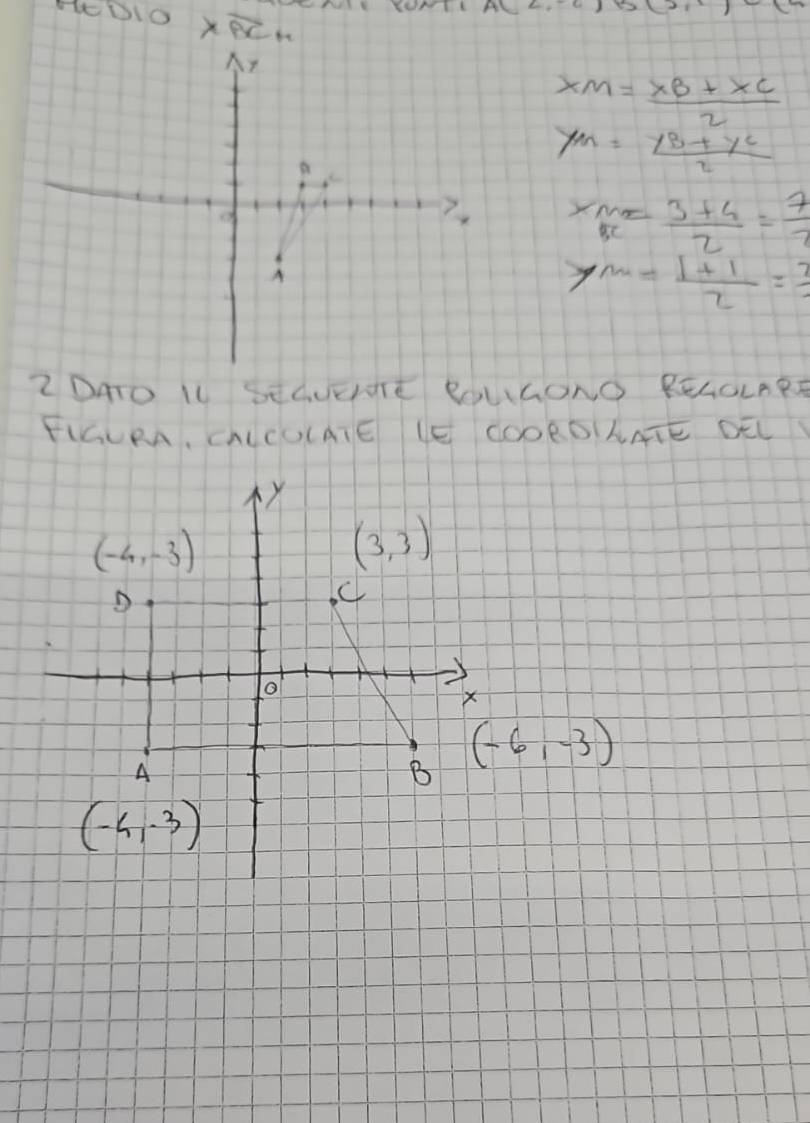 MEDIO x BC
y
xM = xB + xC / 2
yM = yB + yC / 2
A
xM BC = 3+4 / 2 = 7/2
yM = 1+1 / 2 = 2
2 DATO IL SEGUENTE POLIGONO REGOLARE
FIGURA. CALCOLATE LE COORDINATE DEL
y
(-4,-3) (3,3)
D C
O x
(-6,-3)
A B
(-4,-3)